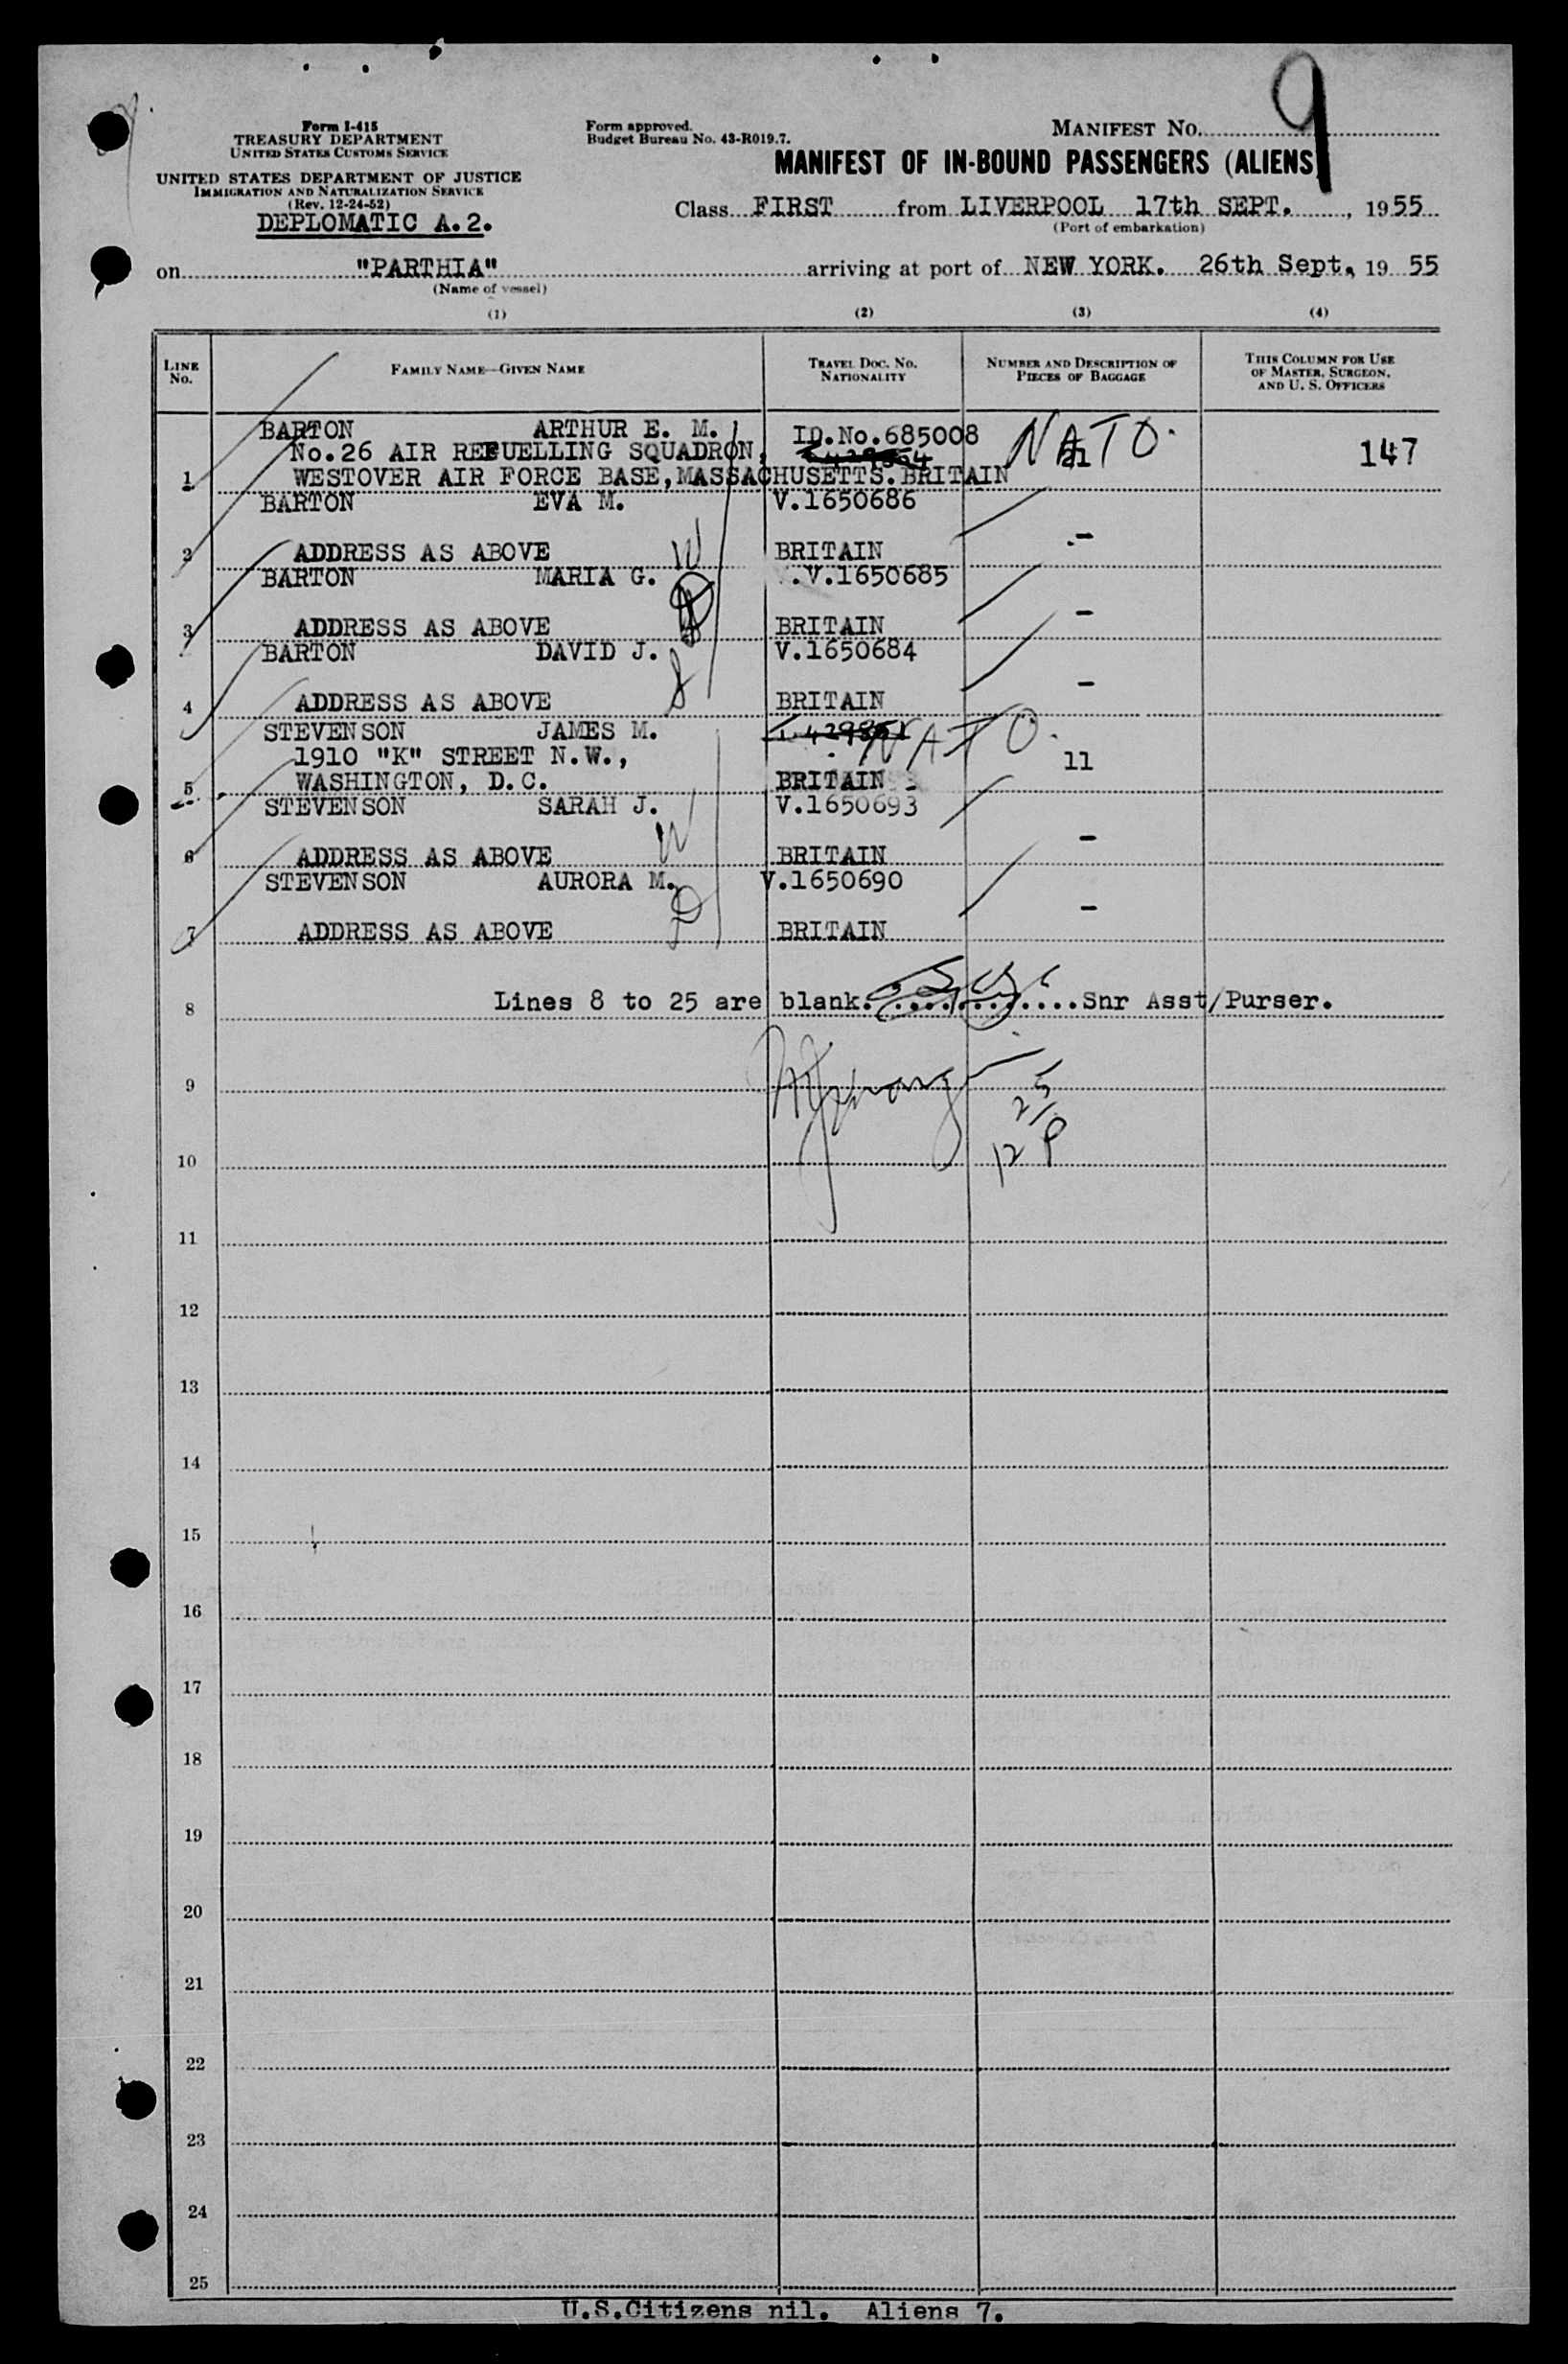 9
Form I-415
TREASURY DEPARTMENT
UNITED STATES CUSTOMS SERVICE
UNITED STATES DEPARTMENT OF JUSTICE
IMMIGRATION AND NATURALIZATION SERVICE
(Rev. 12-24-52)
DEPLOMATIC A.2.
Form approved.
Budget Bureau No. 43-R019.7.
MANIFEST NO.
MANIFEST OF IN-BOUND PASSENGERS (ALIENS)
Class FIRST from LIVERPOOL 17th SEPT., 1955
(Port of embarkation)
on "PARTHIA" arriving at port of NEW YORK. 26th Sept, 19 55
(Name of vessel)
(1) (2) (3) (4)
LINE No. FAMILY NAME—GIVEN NAME TRAVEL DOC. NO. NATIONALITY NUMBER AND DESCRIPTION OF PIECES OF BAGGAGE THIS COLUMN FOR USE OF MASTER, SURGEON, AND U. S. OFFICERS
BARTON ARTHUR E. M. ID.No.685008 NATO
No.26 AIR REFUELLING SQUADRON, 21 147
1 WESTOVER AIR FORCE BASE, MASSACHUSETTS. BRITAIN
BARTON EVA M. V.1650686
W
2 ADDRESS AS ABOVE BRITAIN -
BARTON MARIA G. V.1650685
3 ADDRESS AS ABOVE BRITAIN -
BARTON DAVID J. V.1650684
4 ADDRESS AS ABOVE BRITAIN -
STEVENSON JAMES M. NATO
1910 "K" STREET N.W., 11
5 WASHINGTON, D.C. BRITAIN
STEVENSON SARAH J. V.1650693
W
6 ADDRESS AS ABOVE BRITAIN -
STEVENSON AURORA M. V.1650690
D
7 ADDRESS AS ABOVE BRITAIN -
8 Lines 8 to 25 are blank. Snr Asst/Purser.
9
10
11
12
13
14
15
16
17
18
19
20
21
22
23
24
25
U.S.Citizens nil. Aliens 7.